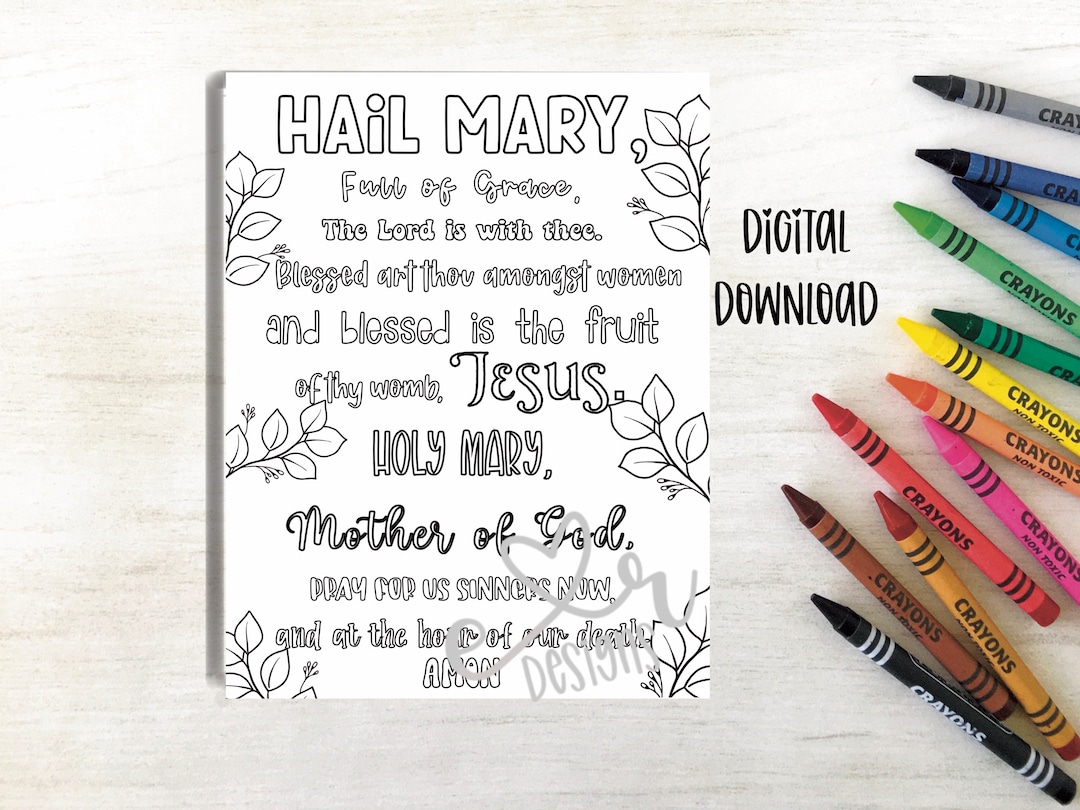 HAiL MARY,
Full of Grace,
The Lord is with thee.
Blessed art thou amongst women
and blessed is the fruit
of thy womb, Jesus.
HOLY MARY,
Mother of God,
PRAY FOR US SINNERS NOW,
and at the hour of our death.
AMON
er
DESIGNS
DIGITAL
DOWNLOAD
CRAY
CRAYONS
CRAYONS
CRAYONS
NON TOXIC
CRAYONS
NON TOXIC
CRAYONS
NON TOXIC
CRAYONS
NON TOXIC
CRAYONS
CRAYONS
CRAYONS